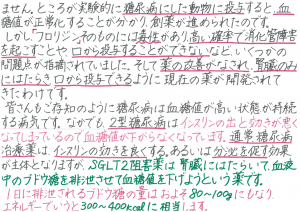 ません。ところが実験的に糖尿病にした動物に投与すると、血
糖値が正常化することが分かり、創薬が進められたのです。
しかし「フロリジン」そのものには毒性があり、高い確率で消化管障害
を起こすことや 口から投与することができないなど、いくつかの
問題点が指摘されていました。そして薬の改善がなされ、腎臓のみ
にはたらき 口から投与できるように 現在の薬が開発されて
きたわけです。
皆さんもご存知のように糖尿病は血糖値が高い状態が持続
する病気です。なかでも 2型糖尿病はインスリンの出と効きが悪く
なってしまっているので血糖値が下がらなくなっています。通常糖尿病
治療薬は、インスリンの効きを良くする、あるいは分泌を促す効果
が主体となりますが、SGLT2阻害薬は 腎臓にはたらいて、血液
中のブドウ糖を排泄させて血糖値を下げようという薬です。
1日に排泄されるブドウ糖の量は およそ80〜100gになり、
エネルギーでいうと300〜400kcalに相当します。